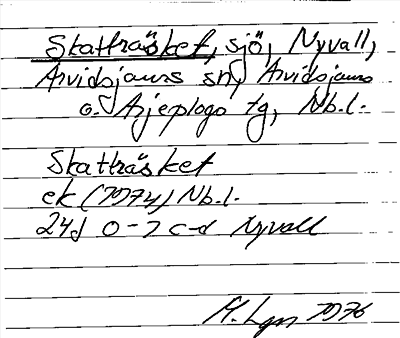 Skatträsket, sjö, Nyvall,
Arvidsjaurs sn, Arvidsjaurs
o. Arjeplogs tg, Nb.l.
Skatträsket
ek (1974) Nb.l.
24J 0-1 c-d Nyvall
1976